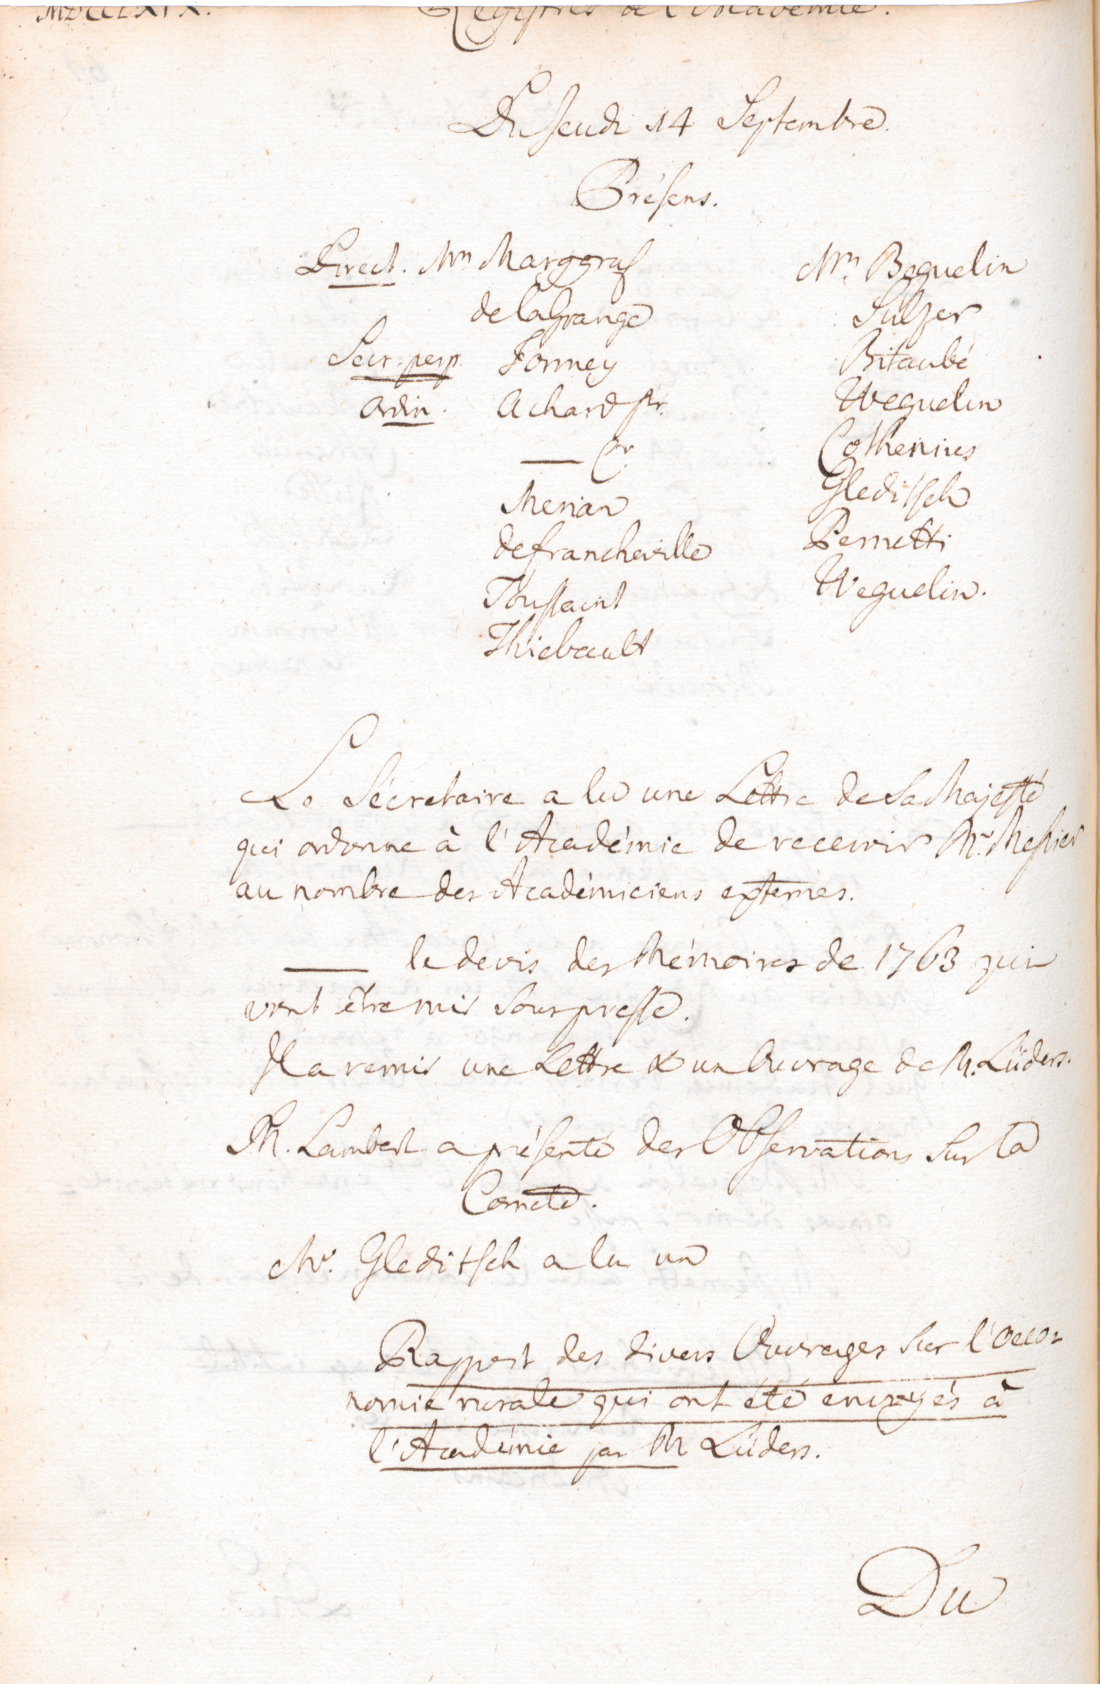 MDCCLXIX.
Registres de l'Academie.
Du Jeudi 14 Septembre.
Présens.
Direct. Mrs Marggraf
de la Grange
Secr. perp. Formey
Ordin. Achard pr.
—— Cr
Merian
de francheville
Toussaint
Thiebault
Mrs Beguelin
Sulzer
Bitaubé
Weguelin
Cothenius
Gleditsch
Pernetti
Weguelin.
Le Sécretaire a lu une Lettre de Sa Majesté
qui ordonne à l'Académie de recevoir Mr. Messier
au nombre des Académiciens externes.
—— le devis des Mémoires de 1763 qui
vont être mis sous presse.
Il a remis une Lettre & un Ouvrage de M. Lüders.
M. Lambert a présenté des Observations sur la
Comete.
Mr. Gleditsch a lu un
Rapport des divers Ouvrages sur l'Oeco-
nomie rurale qui ont été envoyés à
l'Académie par M Lüders.
Du